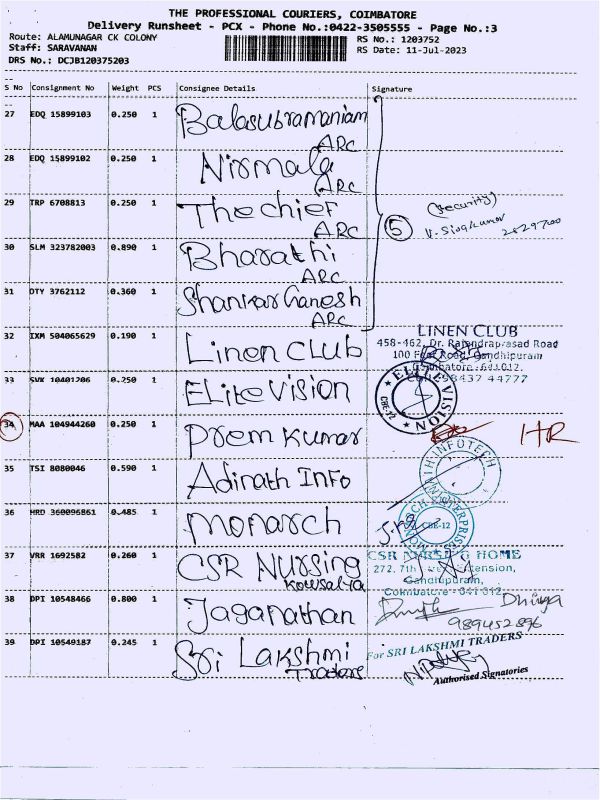 THE PROFESSIONAL COURIERS, COIMBATORE
Delivery Runsheet - PCX - Phone No.:0422-3505555 - Page No.:3
Route: ALAMUNAGAR CK COLONY
RS No.: 1203752
Staff: SARAVANAN
RS Date: 11-Jul-2023
DRS No.: DCJB120375203
S No Consignment No Weight PCS Consignee Details Signature
27 EDQ 15899103 0.250 1 Balasubramaniam
ARC
28 EDQ 15899102 0.250 1 Nirmala
ARC
29 TRP 6708813 0.250 1 The chief
ARC
(security)
5
30 SLM 323782003 0.890 1 Bharathi
ARC
31 DTY 3762112 0.360 1 Shankar Ganesh
ARC
32 IXM 504065629 0.190 1 Linen CLUB
LINEN CLUB
458-462, Dr. Rajendraprasad Road
100 Feet Road, Gandhipuram
Coimbatore - 641 012.
98437 44777
33 SVK 10401206 0.250 1 ELite Vision
ELITE VISION
CBE-12
34 MAA 104944260 0.250 1 Prem Kumar
HR
35 TSI 8080046 0.590 1 Adinath Info
INFOTECH
36 HRD 360096861 0.485 1 Monarch
MONARCH ENTERPRISES
CBE-12
37 VRR 1692582 0.260 1 CSR Nursing
Kowsalya
CSR NURSING HOME
272, 7th Extension,
Gandhipuram,
Coimbatore - 641 012.
38 DPI 10548466 0.800 1 Jaganathan
989452896
39 DPI 10549187 0.245 1 Sri Lakshmi
Traders
For SRI LAKSHMI TRADERS
Authorised Signatories